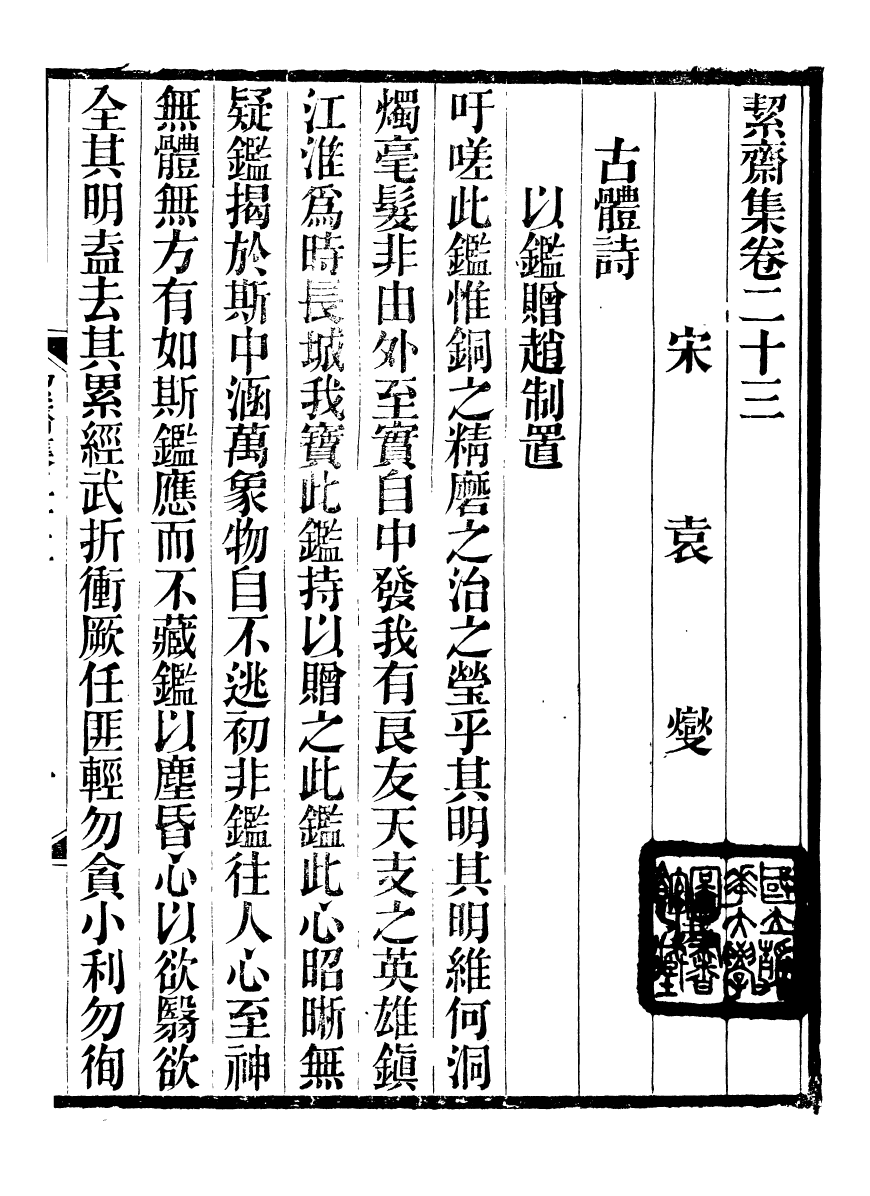 絜齋集卷二十三
宋袁燮
古體詩
以鑑贈趙制置
吁嗟此鑑惟銅之精磨之治之瑩乎其明其明維何洞
燭毫髮非由外至實自中發我有良友天支之英雄鎭
江淮爲時長城我寶此鑑持以贈之此鑑此心昭晰無
疑鑑揭於斯中涵萬象物自不逃初非鑑往人心至神
無體無方有如斯鑑應而不藏鑑以塵昏心以欲翳欲
全其明盍去其累經武折衝厥任匪輕勿貪小利勿徇